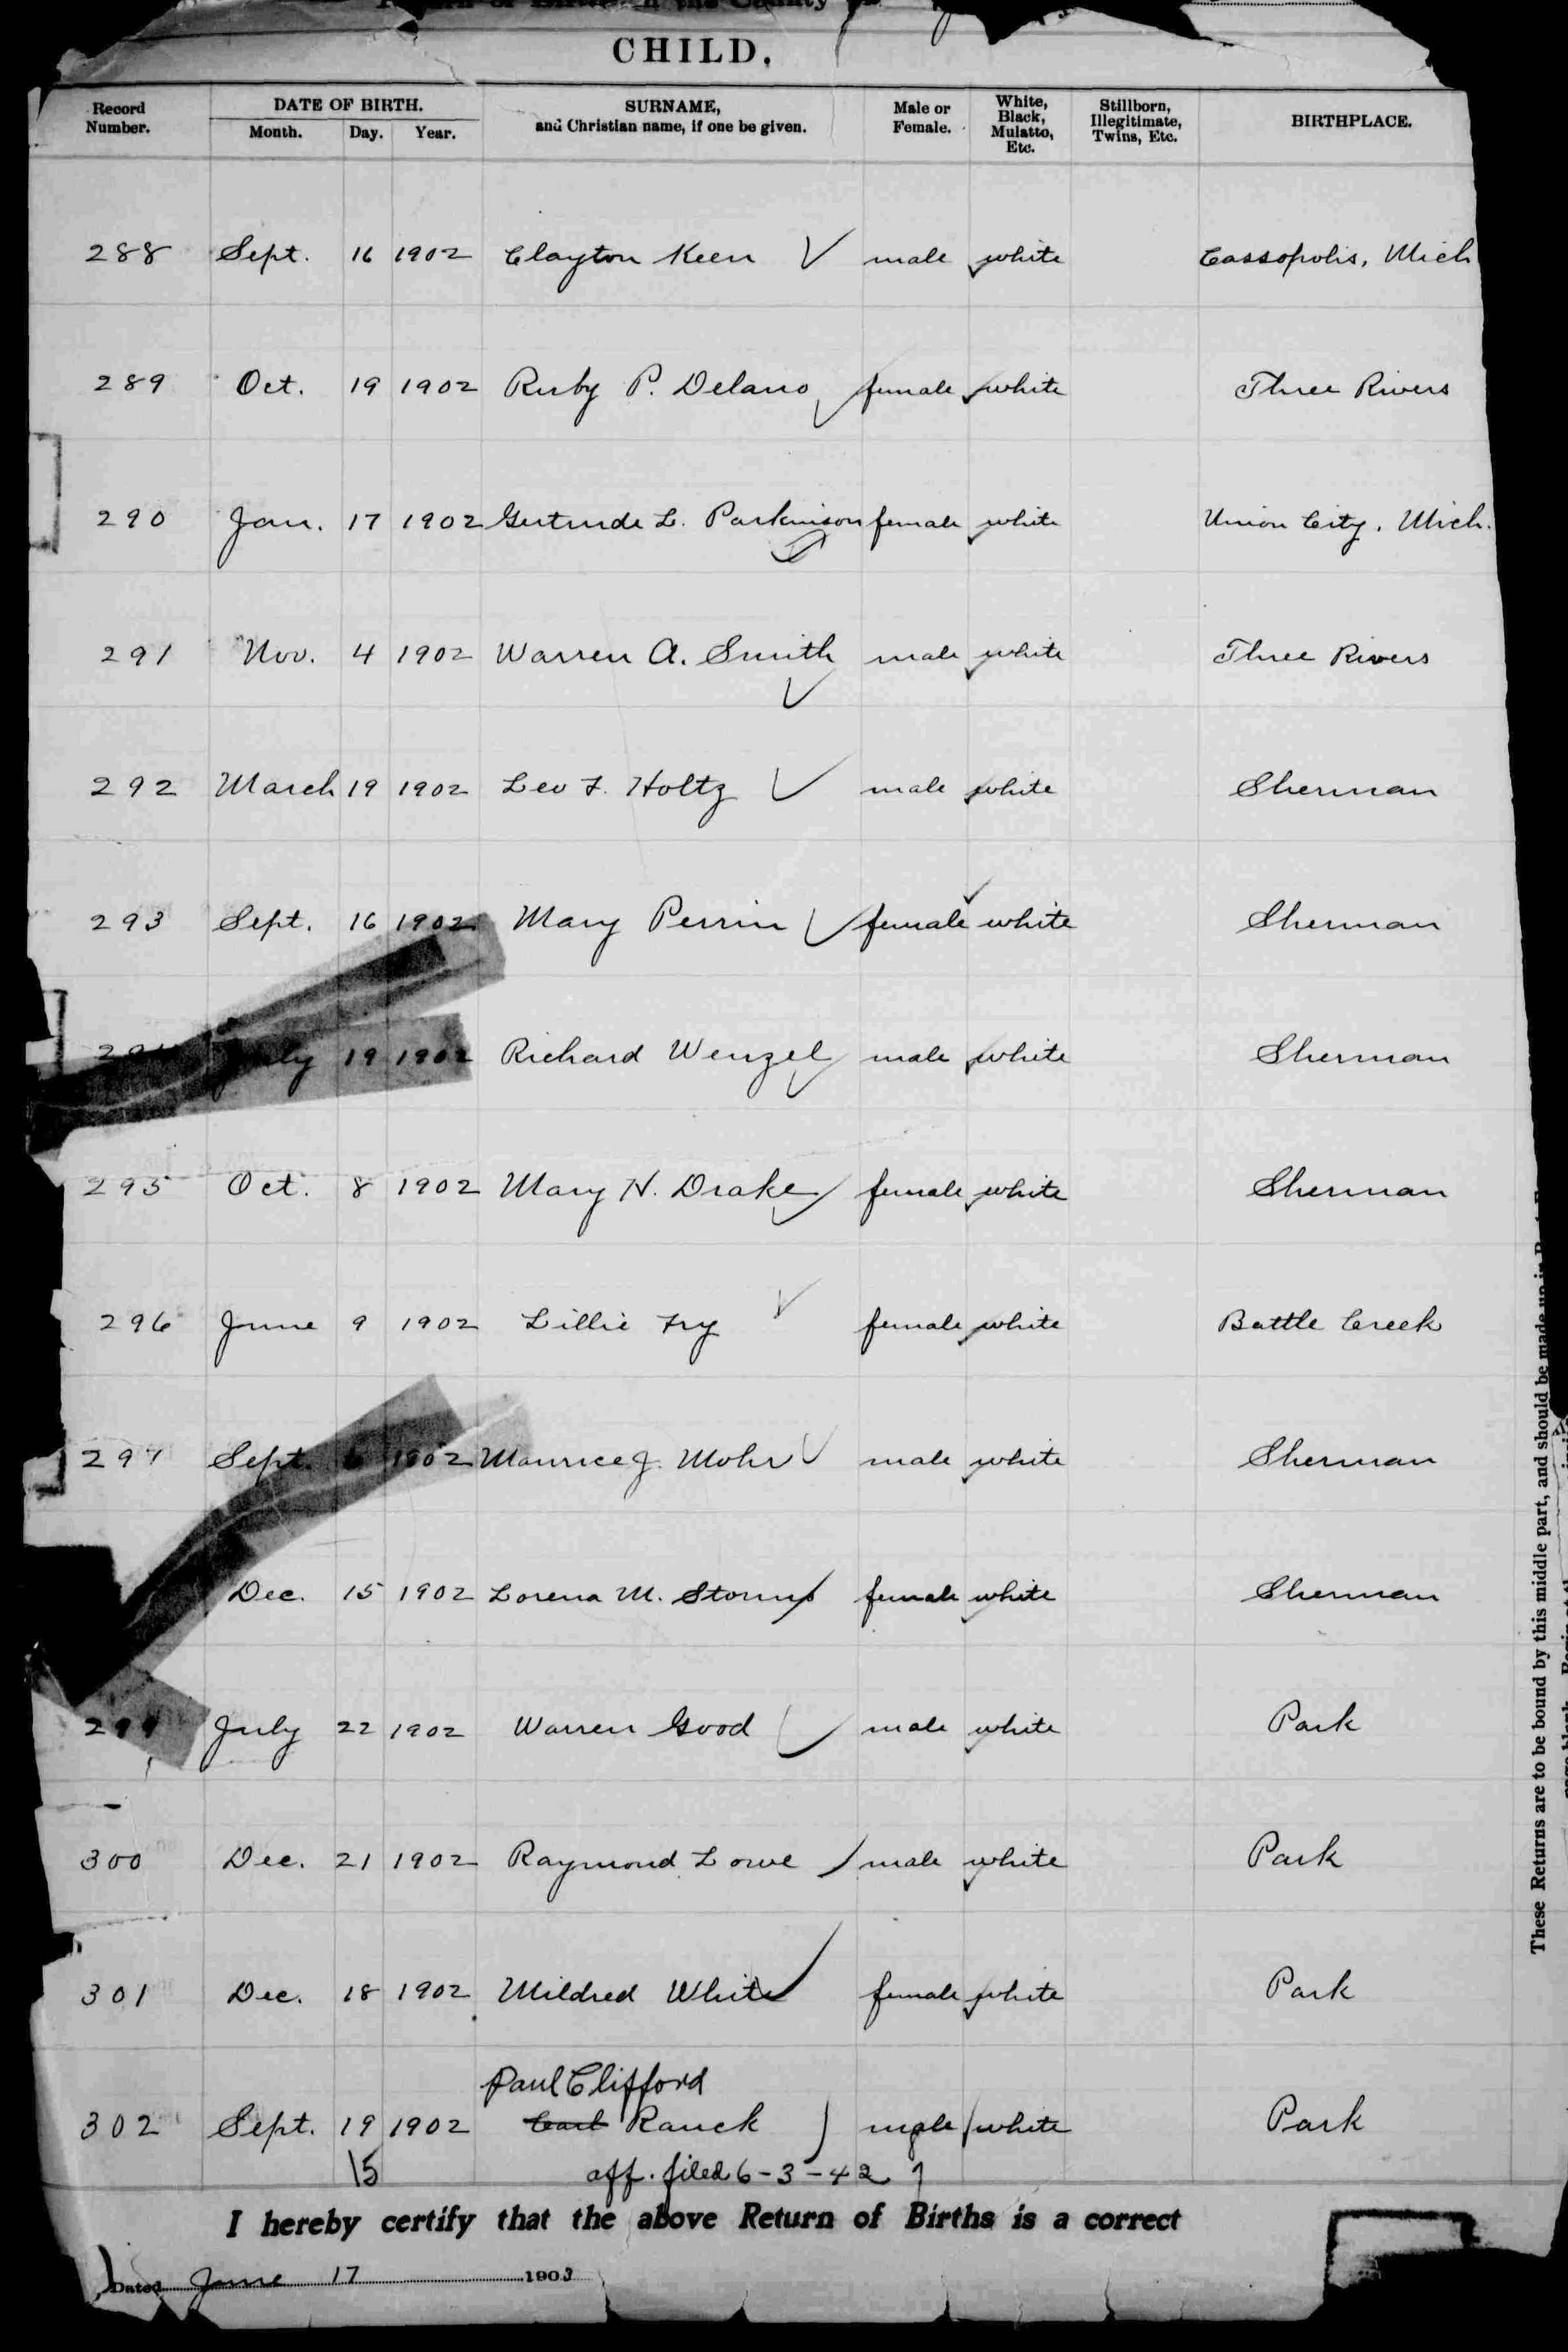 Return of Births in the County of
CHILD.
Record Number. DATE OF BIRTH. Month. Day. Year. SURNAME, and Christian name, if one be given. Male or Female. White, Black, Mulatto, Etc. Stillborn, Illegitimate, Twins, Etc. BIRTHPLACE.
288 Sept. 16 1902 Clayton Keen male white Cassopolis, Mich
289 Oct. 19 1902 Ruby P. Delano female white Three Rivers
290 Jan. 17 1902 Gertrude L. Parkinson female white Union City, Mich.
291 Nov. 4 1902 Warren A. Smith male white Three Rivers
292 March 19 1902 Leo F. Holtz male white Sherman
293 Sept. 16 1902 Mary Perrin female white Sherman
July 19 1902 Richard Wenzel male white Sherman
295 Oct. 8 1902 Mary H. Drake female white Sherman
296 June 9 1902 Lillie Fry female white Battle Creek
297 Sept. 1902 Maurice J. Mohr male white Sherman
Dec. 15 1902 Lorena M. Storms female white Sherman
299 July 22 1902 Warren Good male white Park
300 Dec. 21 1902 Raymond Lowe male white Park
301 Dec. 18 1902 Mildred White female white Park
Paul Clifford
302 Sept. 19 1902 Carl Ranck male white Park
15 aff. filed 6-3-42
I hereby certify that the above Return of Births is a correct
Dated June 17 1903
These Returns are to be bound by this middle part, and should be made up in